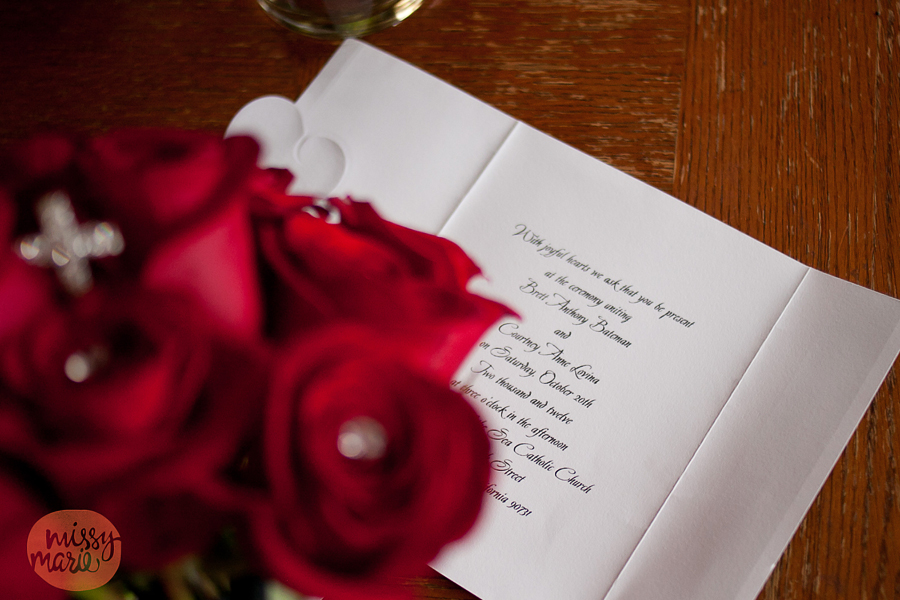 With joyful hearts we ask that you be present
at the ceremony uniting
Brett Anthony Bateman
and
Courtney Anne Lovina
on Saturday, October 20th
Two thousand and twelve
at three o'clock in the afternoon
Sea Catholic Church
Street
90731
missy
marie